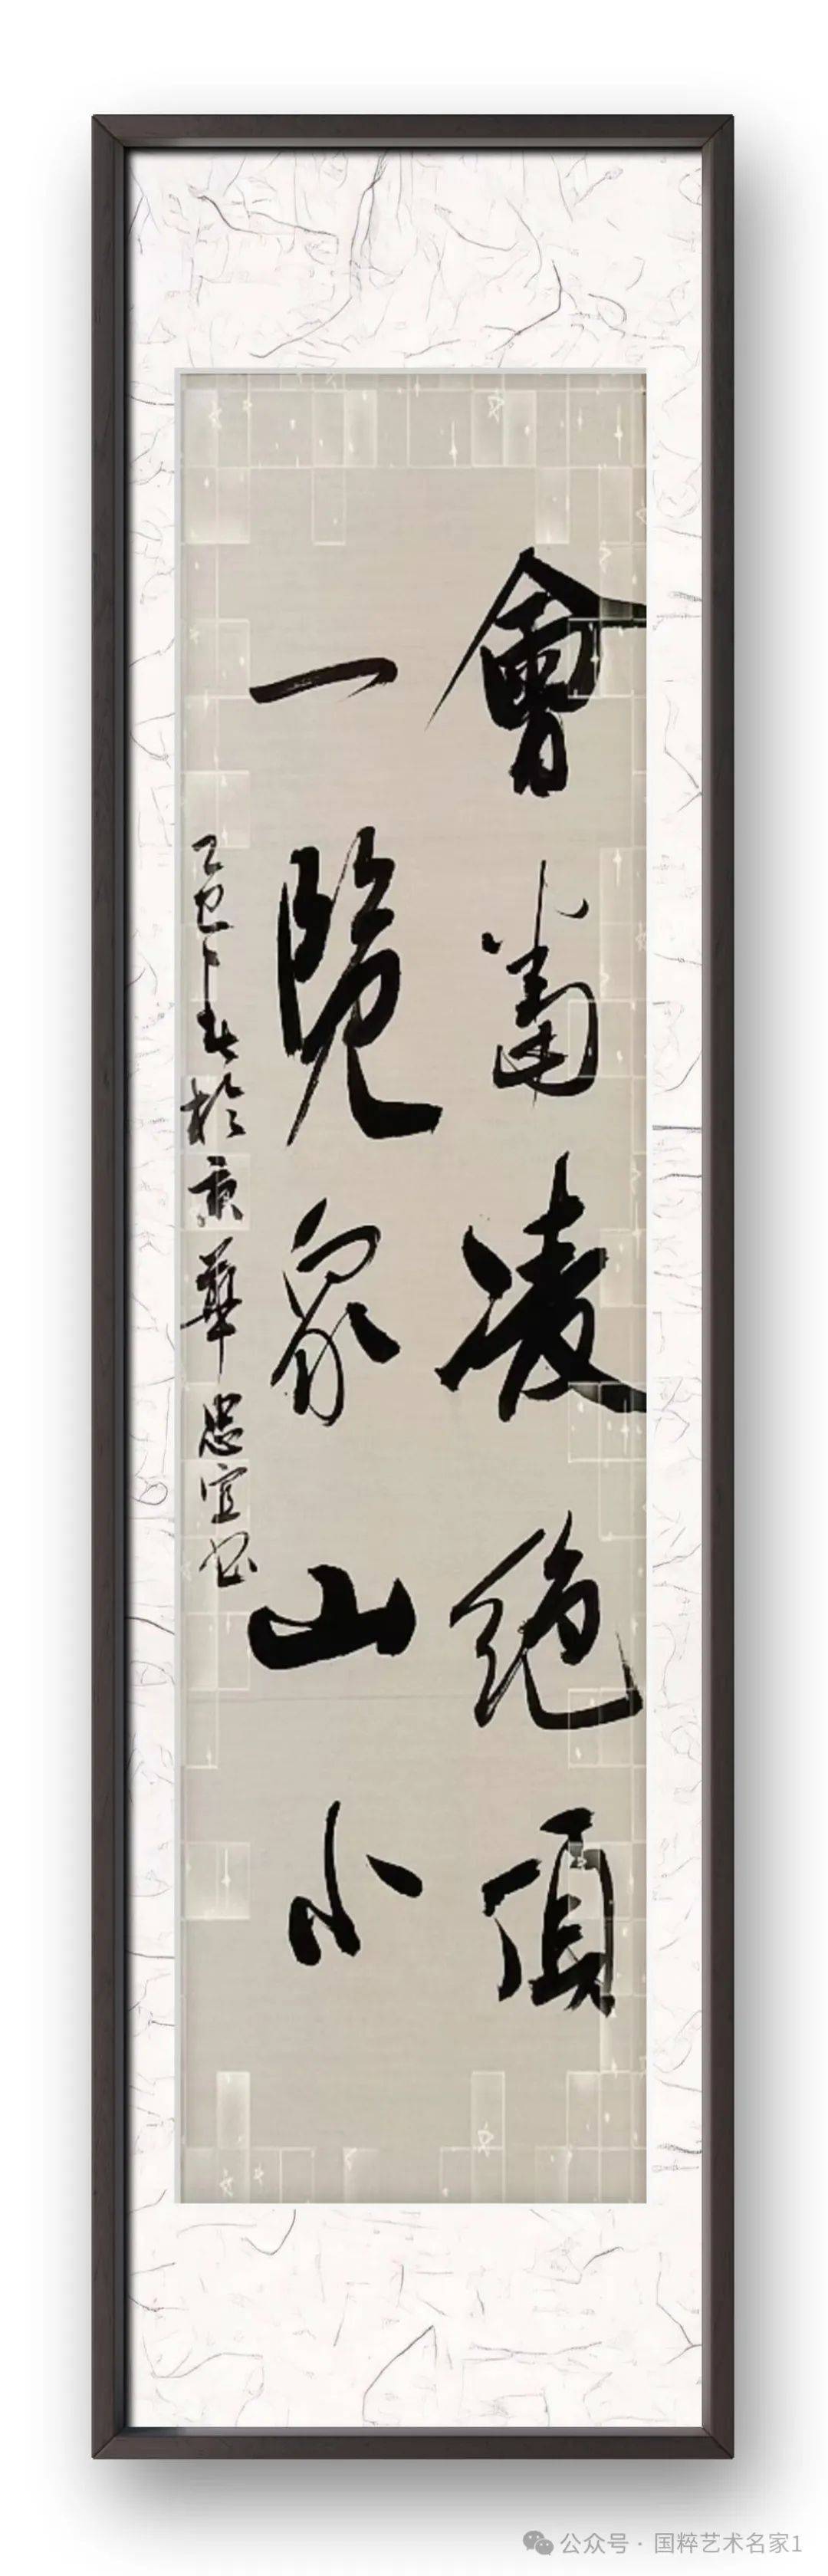 會當凌絕頂
一覽眾山小
乙巳年春於京華忠宜書
公众号 · 国粹艺术名家1